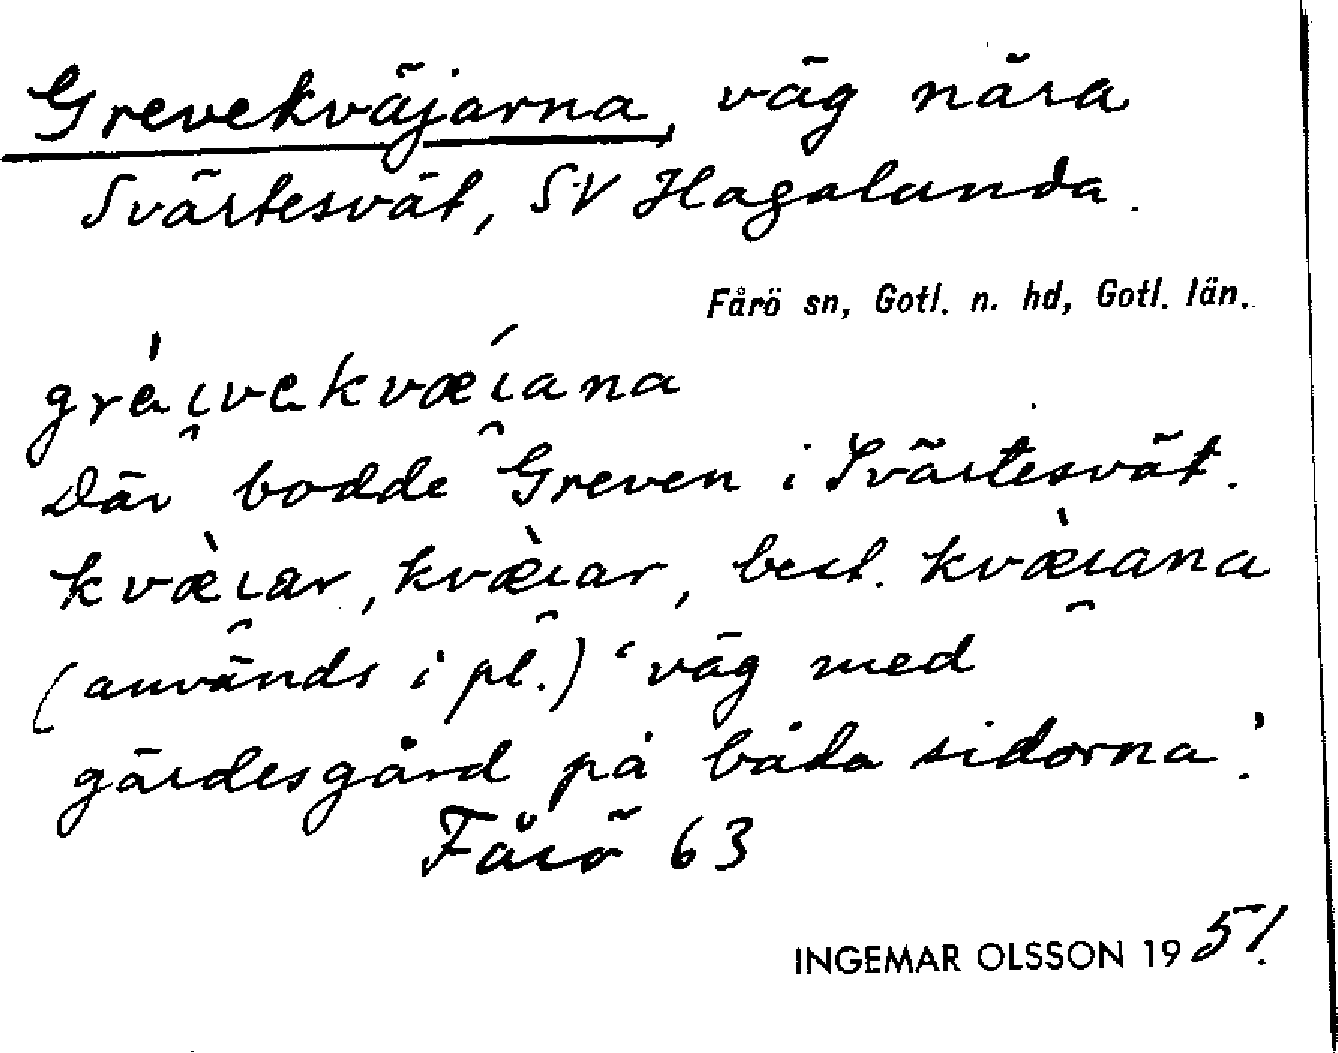 Grevekväjarna, väg nära
Svärtesvät, SV Hagalunda.
Fårö sn, Gotl. n. hd, Gotl. län.
grèi̯vekvæ̀i̯ana
Där bodde Greven i Svärtesvät.
kvæ̀i̯ar, kvæ̀i̯ar, best. kvæ̀i̯ana
(används i pl.) ‘väg med
gärdesgård på båda sidorna’.
Fårö 63
INGEMAR OLSSON 1951.